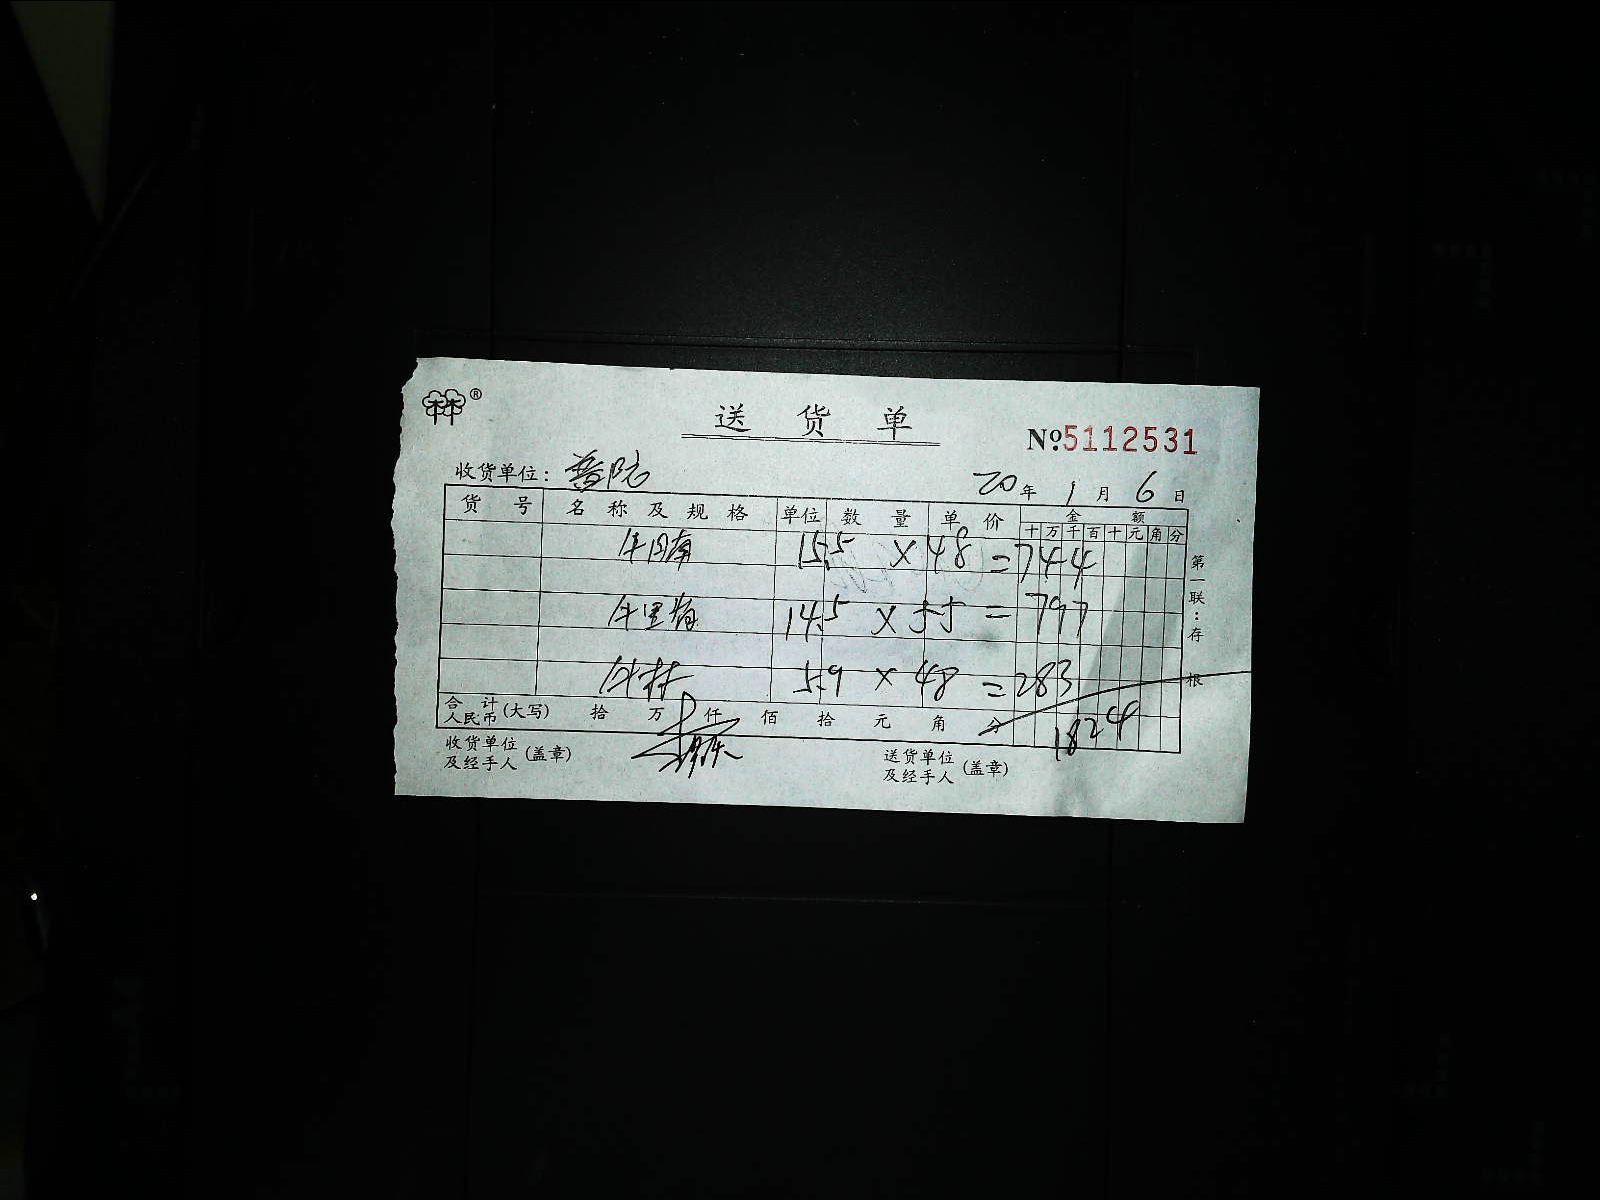 林®
送 货 单
№5112531
收货单位: 普院
20年 1月 6日
货 号 名 称 及 规 格 单位 数 量 单 价 金 额
十 万 千 百 十 元 角 分
牛肉 15.5 × 48 = 744
牛 14.5 × 55 = 797
牛林 5.9 × 48 = 283
合 计 人民币 (大写) 拾 万 仟 佰 拾 元 角 分 1824
收货单位及经手人 (盖章)
送货单位及经手人 (盖章)
第一联:存根